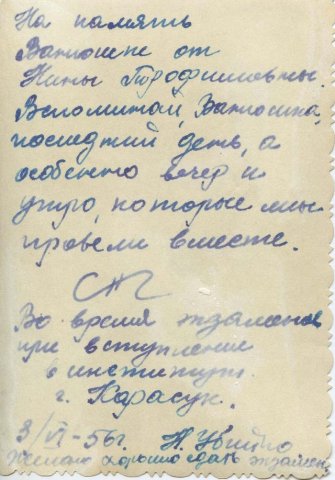 На память
Ванюшке от
Нины Тимофеевны.
Вспоминай, Ванюша,
последний день, а
особенно вечер и
утро, которые мы
провели вместе.
Во время экзаменов
при вступление
в институт.
г. Карасук.
3/VI-56г.
Желаю хорошо сдать экзамен.